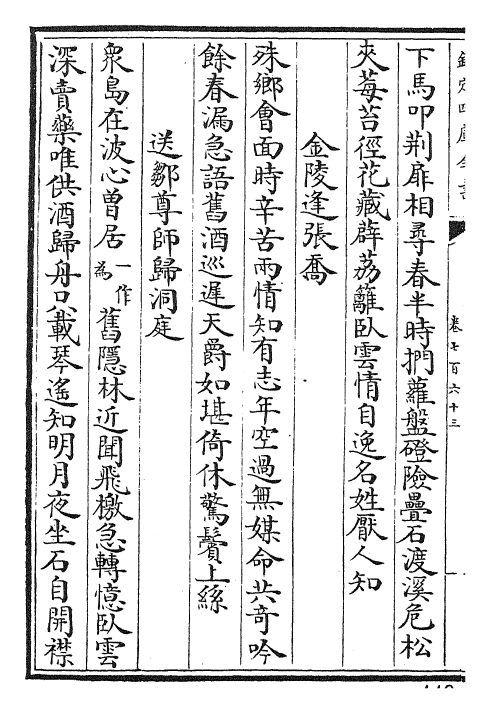 欽定四庫全書
卷七百六十三
下馬叩荆扉相尋春半時捫蘿盤磴險疊石渡溪危松
夾莓苔徑花藏薜荔籬臥雲情自逸名姓厭人知
金陵逢張喬
殊鄉會面時辛苦兩情知有志年空過無媒命共竒吟
餘春漏急語舊酒巡遲天爵如堪倚休驚鬢上絲
送鄒尊師歸洞庭
衆島在波心曽居一作為舊隱林近聞飛檄急轉憶臥雲
深賣藥唯供酒歸舟只載琴遙知明月夜坐石自開襟